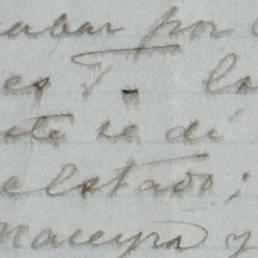 cabar por
es T. lo
ste se di
el estado;
Maceyra y